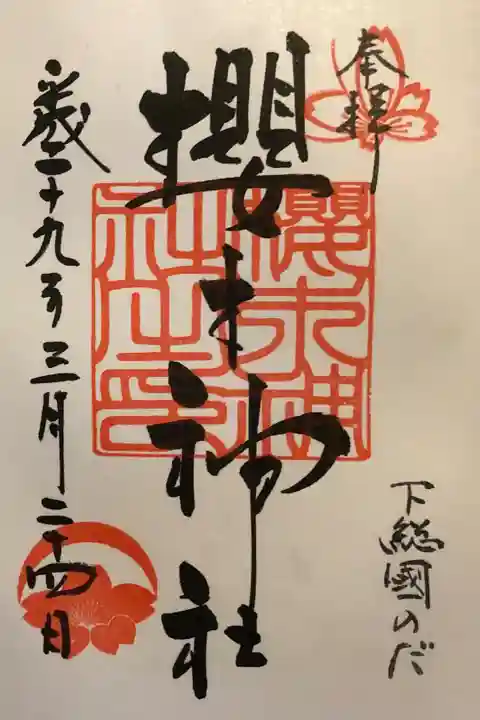 奉拝
下総國のだ
櫻木神社
櫻木神社之印
平成二十九年三月二十四日